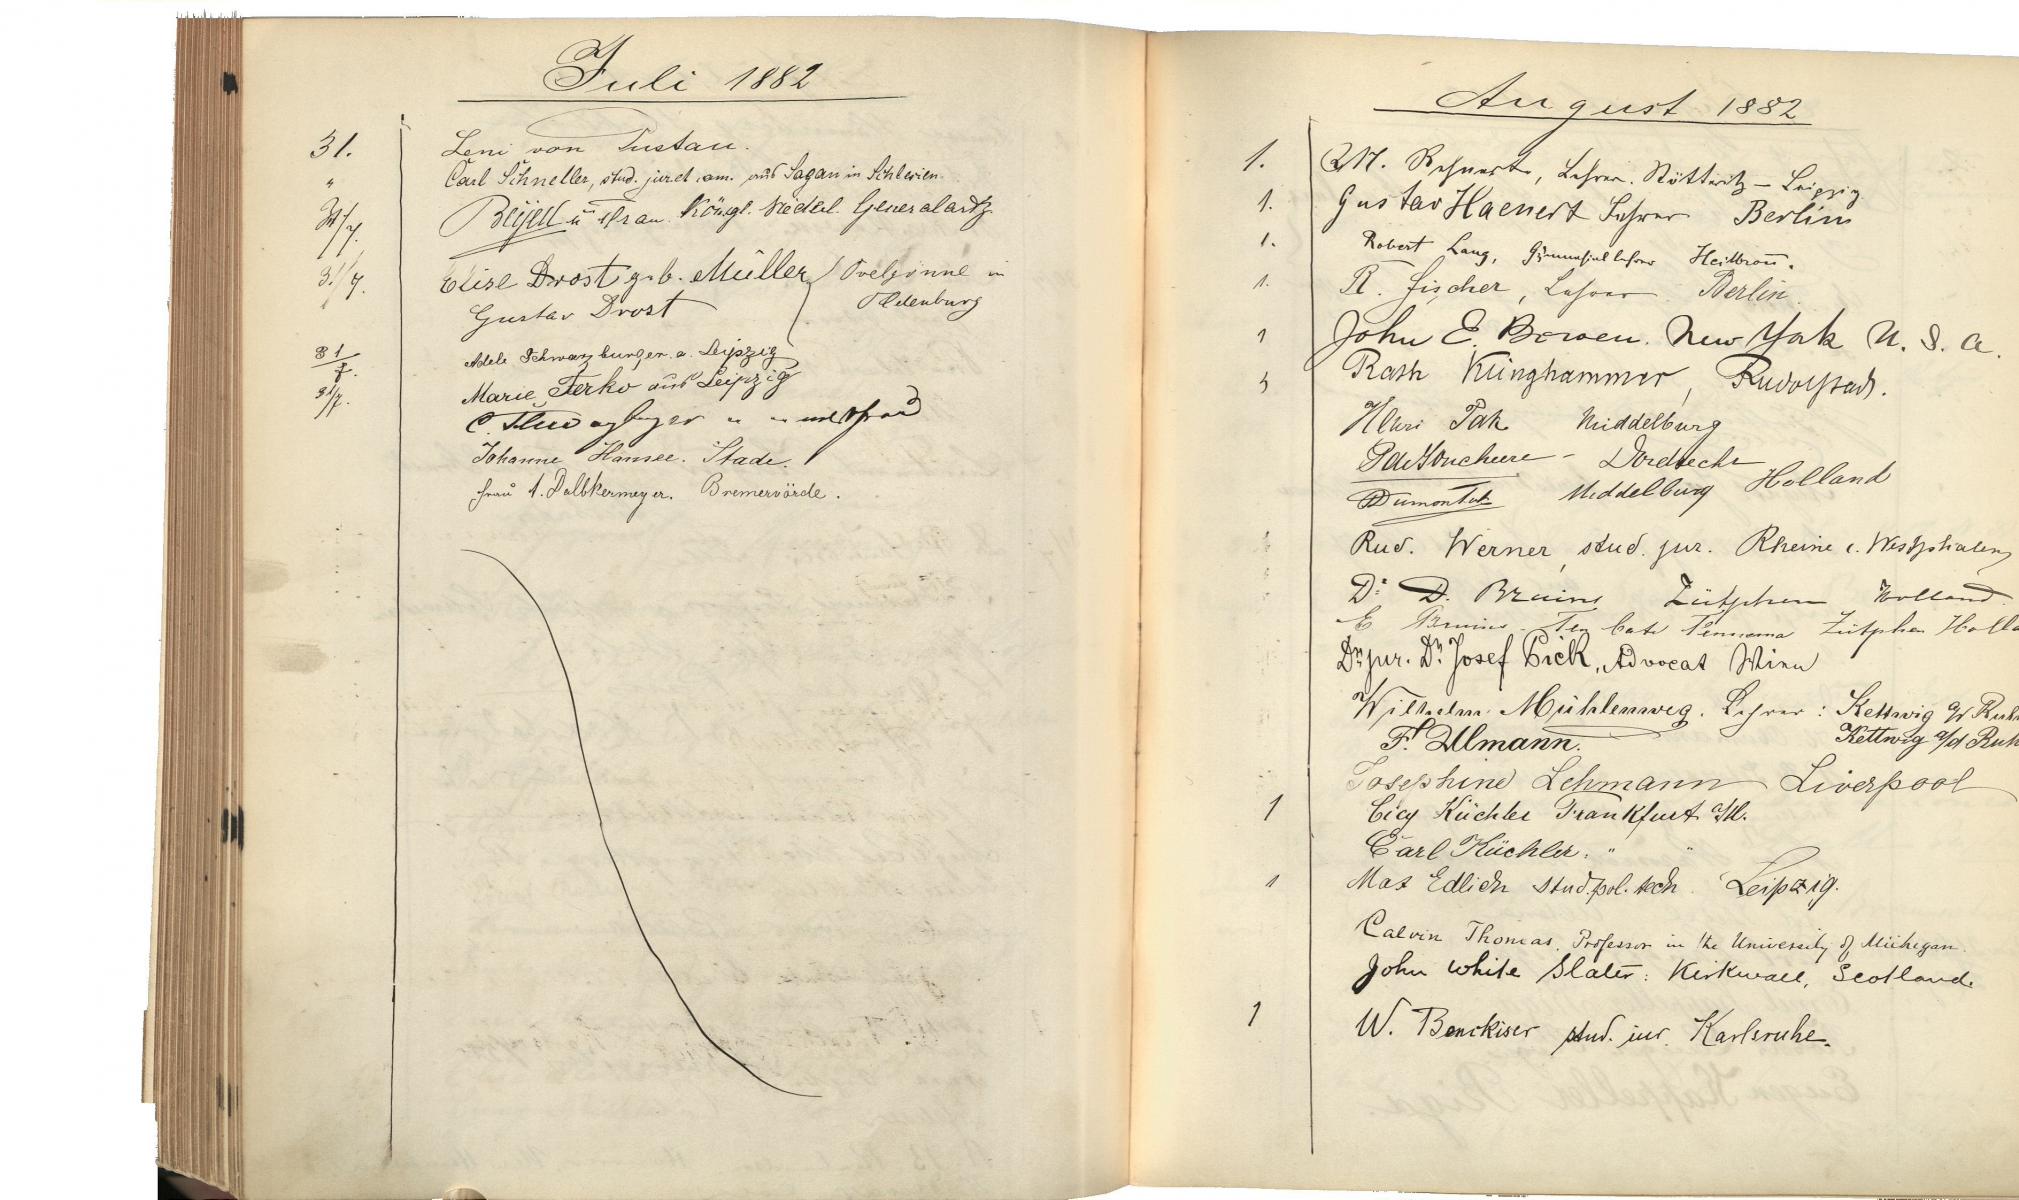 Juli 1882
31. Leni von Pustau.
" Carl Schneller, stud. jur. et. cam. aus Sagan in Schlesien.
31/7. Beijen u Frau. Königl. Niederl. Generalarzt
31/7. Elise Drost geb. Müller } Ovelgönne in
Gustav Drost Oldenburg
31/7. Adele Schwarzburger. a. Leipzig
31/7. Marie Ferko aus Leipzig
C. " " und Frau
Johanne Hansee. Stade.
Frau A. Dallkermeyer. Bremervörde.
August 1882
1. Lehrer. Leipzig
1. Gustav Haenert Lehrer Berlin
1. Robert Lang, Gymnasiallehrer Heilbronn.
1. R. Fischer, Lehrer Berlin.
1 John E. Bowen. New York U. S. A.
Rath Klinghammer, Rudolstadt.
Henri Tak Middelburg
Dordrecht
Middelburg Holland
Rud. Werner, stud. jur. Rheine i. Westphalen
Dr D. Bruins Zütphen Holland
E Bruins - Ten Cate Fennema Zutphen Holla
Dr jur. Dr. Josef Pick, Advocat Wien
Wilhelm Mühlenweg. Lehrer: Kettwig a/d Ruh
F. Ullmann. Kettwig a/d Ruh
Josephine Lehmann Liverpool
1 Cicy Küchler Frankfurt a/M.
Carl Küchler. " "
1 Max Edlich stud. pol. tech. Leipzig.
Calvin Thomas, Professor in the University of Michigan.
John White Slater: Kirkwall, Scotland.
1 W. Benckiser stud. iur. Karlsruhe.